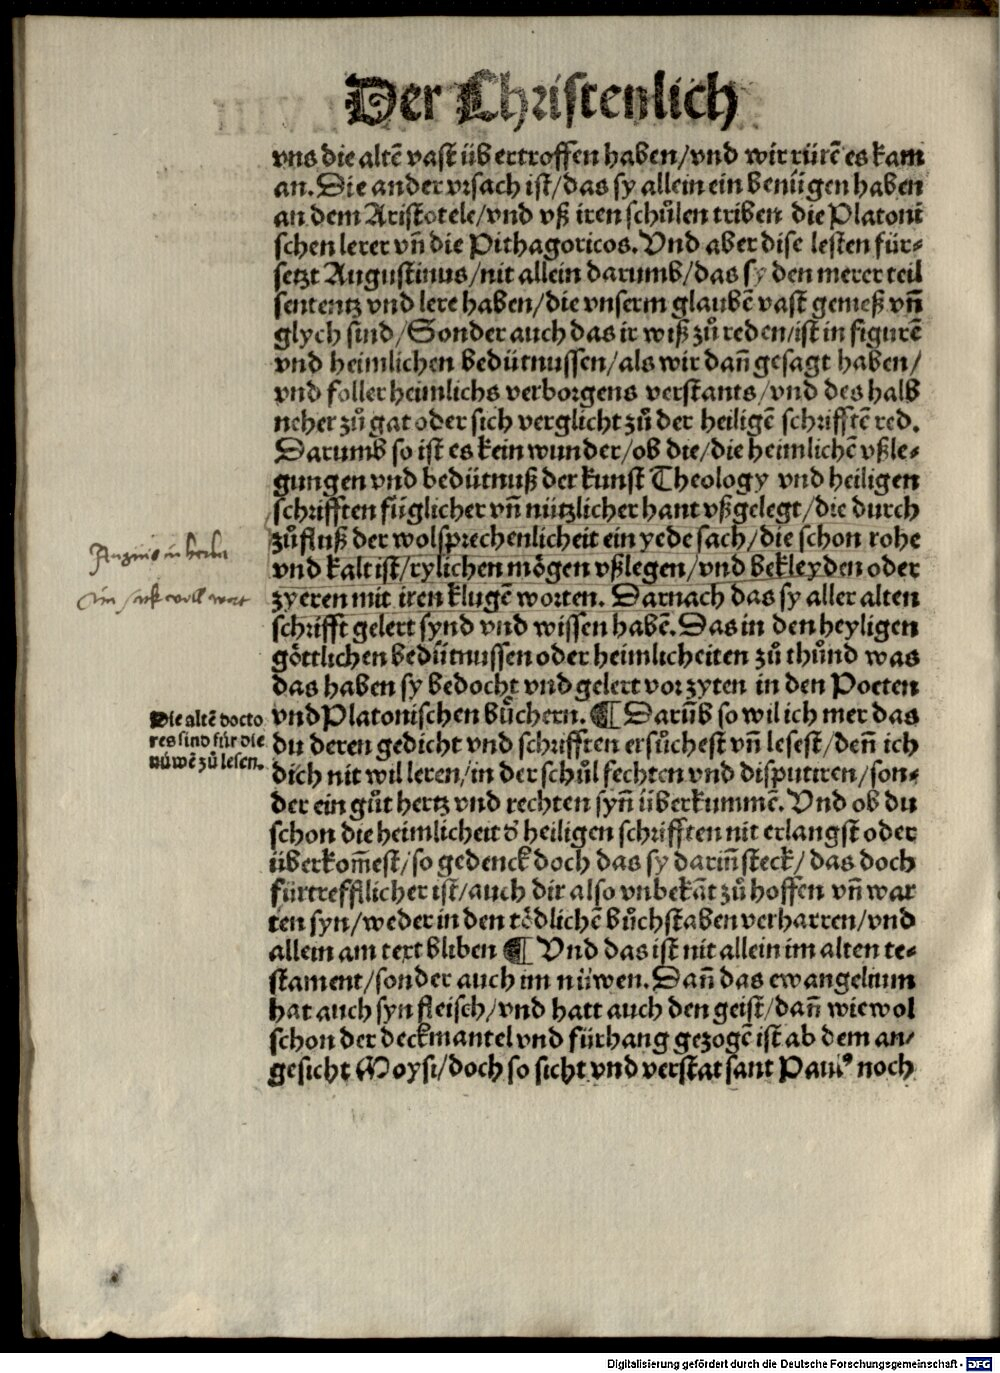 Der Christenlich
vns die altē vast übertroffen haben/vnd wir rürē es kam
an. Die ander vrsach ist/das sy allein ein benügen haben
an dem Aristotele/vnd vß iren schůlen triben die Platoni
schen lerer vn̄ die Pithagoricos. Vnd aber dise lesten für-
setzt Augustinus/nit allein darumb/das sy den merer teil
sententz vnd lere haben/die vnserm glaubē vast gemeß vn̄
glych sind/Sonder auch das ir wiß zů reden/ist in figurē
vnd heimlichen bedütnussen/als wir dan̄ gesagt haben/
vnd foller heimlichs verborgens verstants/vnd des halb
neher zů gat oder sich verglicht zů der heiligē schrifftē red.
Darumb so ist es kein wunder/ob die/die heimlichē vßle-
gungen vnd bedütnuß der kunst Theology vnd heiligen
schrifften füglicher vn̄ nützlicher hant vßgelegt/die durch
zůfluß der wolsprechenlicheit ein yede sach/die schon rohe
vnd kalt ist/rylichen mögen vßlegen/vnd bekleyden oder
zyeren mit iren klugē worten. Darnach das sy aller alten
schrifft gelert synd vnd wissen habē. Das in den heyligen
göttlichen bedütnussen oder heimlicheiten zů thůnd was
das haben sy bedocht vnd gelert vor zyten in den Poeten
Die altē docto
res sind für die
nüwē zů lesen.
vnd Platonischen bůchern. ¶ Darūb so wil ich mer das
du deren gedicht vnd schrifften ersůchest vn̄ lesest/den̄ ich
dich nit wil leren/in der schůl fechten vnd disputiren/son-
der ein gůt hertz vnd rechten syn̄ überkummē. Vnd ob du
schon die heimlicheit d' heiligen schrifften nit erlangst oder
überkom̄est/so gedenck doch das sy darin̄ steck/das doch
fürtrefflicher ist/auch dir also vnbekāt zů hoffen vn̄ war
ten syn/weder in den tödlichē bůchstaben verharren/vnd
allein am text bliben ¶ Vnd das ist nit allein im alten te-
stament/sonder auch im nüwen. Dan̄ das ewangelium
hat auch syn fleisch/vnd hatt auch den geist/dan̄ wiewol
schon der deckmantel vnd fürhang gezogē ist ab dem an-
gesicht Moysi/doch so sicht vnd verstat sant Paul⁹ noch
Digitalisierung gefördert durch die Deutsche Forschungsgemeinschaft - DFG